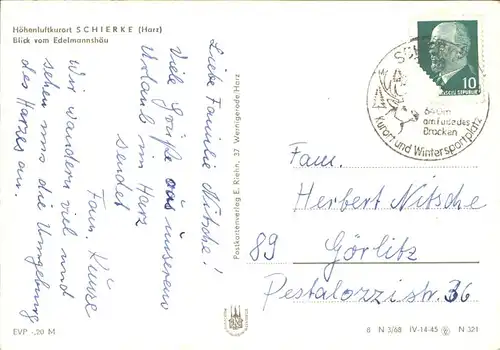 Höhenluftkurort SCHIERKE (Harz)
Blick vom Edelmannshäu
Liebe Familie Nitsche!
Viele Grüße aus unserem
Urlaub im Harz
sendet
Fam. Kunze
Wir wandern viel und
sehen uns die Umgebung
des Harzes an.
EVP -,20 M
Postkartenverlag E. Riehn, 37 Wernigerode-Harz
10
640m
am Fuße des
Brocken
Kurort und Wintersportplatz
Fam.
Herbert Nitsche
89 Görlitz
Pestalozzistr. 36
6 N 3/68 IV-14-45 N 321